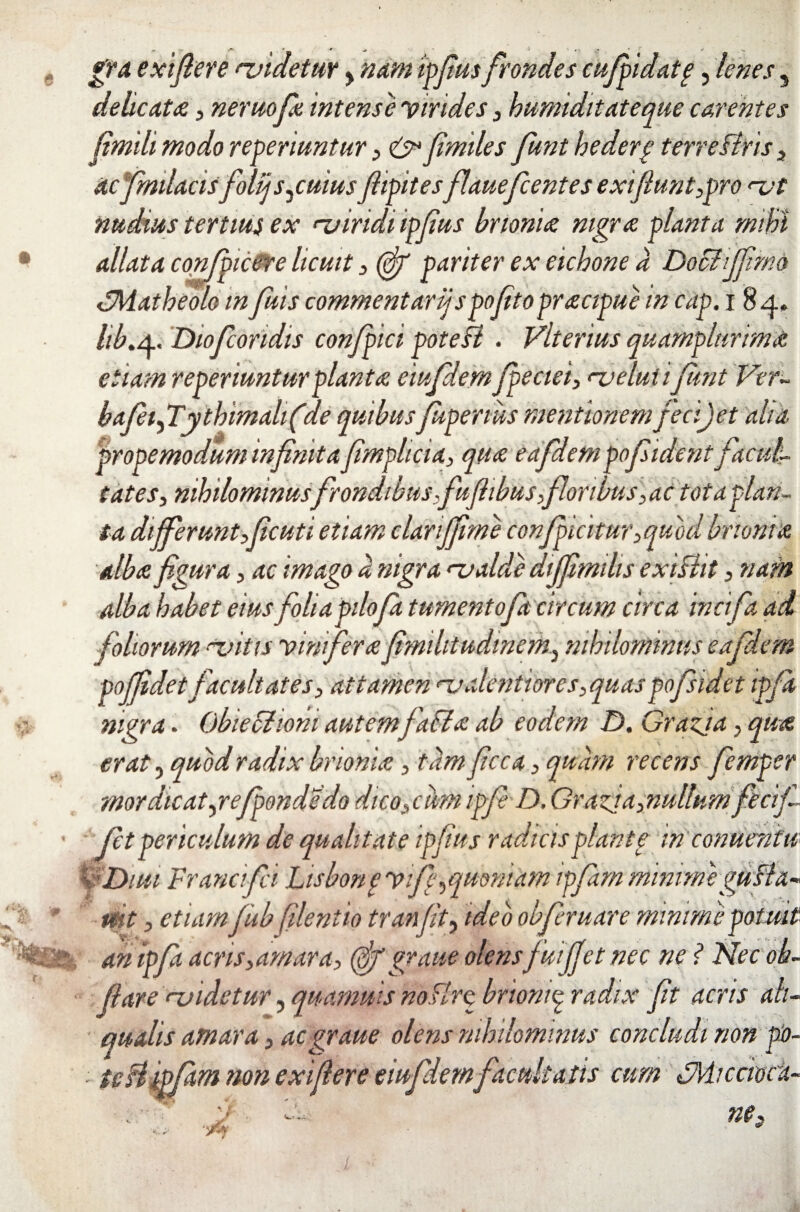 gra existere videtur, nam ipsius frondes cuspidatę, lenes,
delicatæ, neruosæ intensè virides, humiditateque carentes
simili modo reperiuntur, & similes sunt hederę terrestris,
ac smilacis folijs, cuius stipites flauescentes existunt, pro vt
nudius tertius ex viridi ipsius brioniæ nigræ planta mihi
allata conspicere licuit, & pariter ex eichone à Doctissimo
Matheolo in suis commentarijs posito præcipuè in cap. 184.
lib. 4. Dioscoridis conspici potest. Vlterius quamplurimæ
etiam reperiuntur plantæ eiusdem speciei, veluti sunt Ver-
basei, Tythimali (de quibus superius mentionem feci) et alia
propemodum infinita simplicia, quæ easdem possident facul-
tates, nihilominus frondibus, fustibus, floribus, ac tota plan-
ta differunt, sicuti etiam clarissimè conspicitur, quòd brioniæ
albæ figura, ac imago à nigra valdè dissimilis existit, nam
alba habet eius folia pilosa tumentosa circum circa incisa ad
foliorum vitis viniferæ similitudinem, nihilominus easdem
possidet facultates, attamen valentiores, quas possidet ipsa
nigra. Obiectioni autem factæ ab eodem D. Grazia, quæ
erat, quòd radix brioniæ, tàm sicca, quàm recens semper
mordicat, respondēdo dico, cùm ipse D. Grazia, nullum fecis-
set periculum de qualitate ipsius radicis plantę in conuentu
Diui Francisci Lisbonę visę, quoniam ipsam minimè gusta-
uit, etiam sub silentio transit, ideò obseruare minimè potuit
an ipsa acris, amara, & graue olens fuisset nec ne? Nec ob-
stare videtur, quamuis nostrę brionię radix sit acris ali-
qualis amara, ac graue olens nihilominus concludi non po-
test ipsam non existere eiusdem facultatis cum Micciocà-
ne,